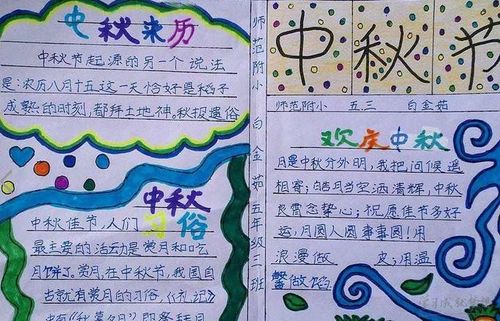 中秋来历
中秋节起源的另一个说法
是:农历八月十五这一天恰好是稻子
成熟的时刻,都拜土地神,秋报遗俗
中秋
习俗
中秋佳节,人们
最主要的活动是赏月和吃
月饼了。赏月,在中秋节,我国自
古就有赏月的习俗,《礼记》
师范附小 白金茹 五年级三班
中秋节
师范附小 五三 白金茹
欢庆中秋
月是中秋分外明,我把问候遥
相寄;皓月当空洒清辉,中秋
良宵念挚心;祝愿佳节多好
运,月圆人圆事事圆!用
浪漫做 皮;用温
馨做馅